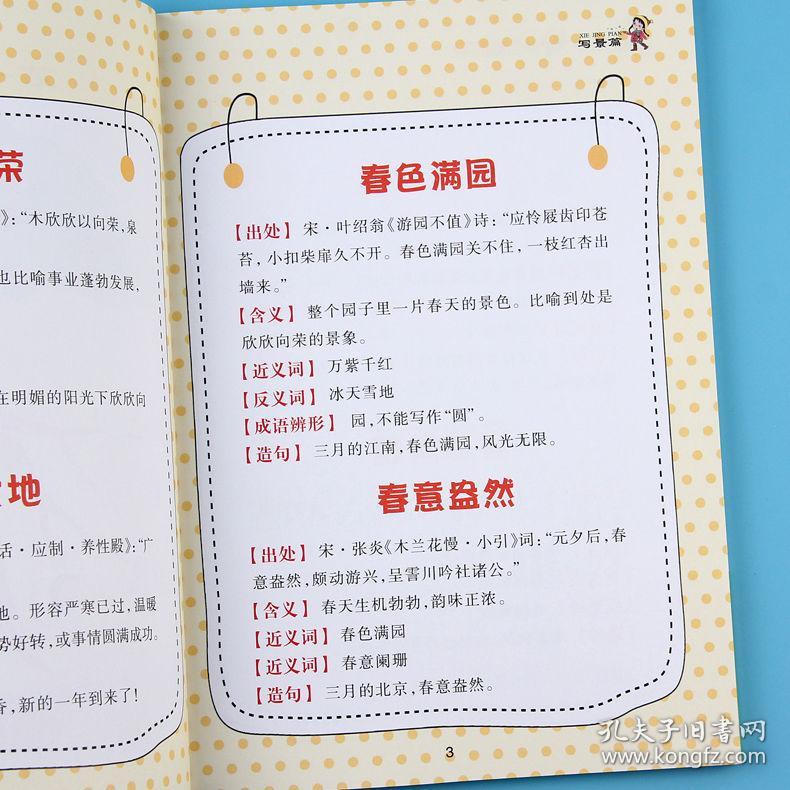 荣
》：“木欣欣以向荣，泉
也比喻事业蓬勃发展，
在明媚的阳光下欣欣向
地
话·应制·养性殿》：“广
地。形容严寒已过，温暖
势好转，或事情圆满成功。
香，新的一年到来了！
XIE JING PIAN
写景篇
春色满园
【出处】宋·叶绍翁《游园不值》诗：“应怜屐齿印苍
苔，小扣柴扉久不开。春色满园关不住，一枝红杏出
墙来。”
【含义】整个园子里一片春天的景色。比喻到处是
欣欣向荣的景象。
【近义词】万紫千红
【反义词】冰天雪地
【成语辨形】园，不能写作“圆”。
【造句】三月的江南，春色满园，风光无限。
春意盎然
【出处】宋·张炎《木兰花慢·小引》词：“元夕后，春
意盎然，颇动游兴，呈霅川吟社诸公。”
【含义】春天生机勃勃，韵味正浓。
【近义词】春色满园
【近义词】春意阑珊
【造句】三月的北京，春意盎然。
3
孔夫子旧书网
www.kongfz.com